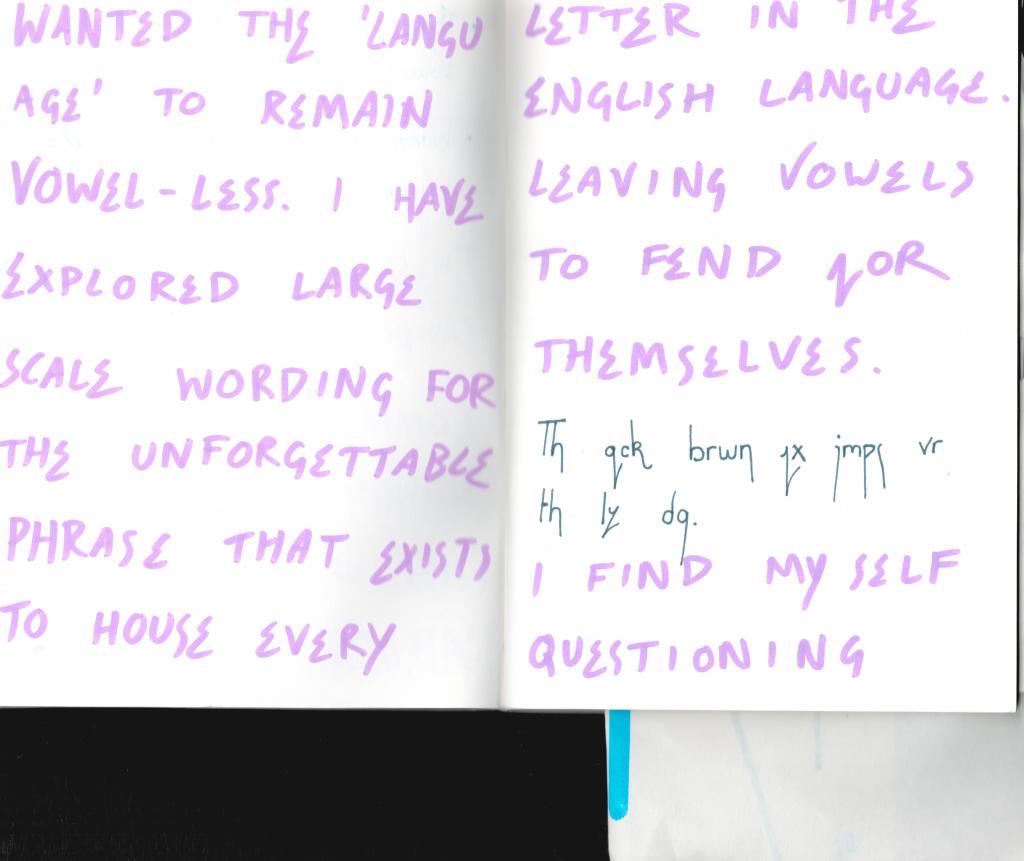 WANTED THE 'LANGU
AGE' TO REMAIN
VOWEL-LESS. I HAVE
EXPLORED LARGE
SCALE WORDING FOR
THE UNFORGETTABLE
PHRASE THAT EXISTS
TO HOUSE EVERY
LETTER IN THE
ENGLISH LANGUAGE.
LEAVING VOWELS
TO FEND FOR
THEMSELVES.
Th qck brwn fx jmps vr
th lzy dg.
I FIND MYSELF
QUESTIONING